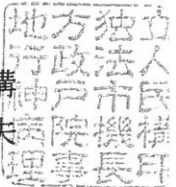 地方独立
行政法人
神戸市民
病院機構
理事長印
夫